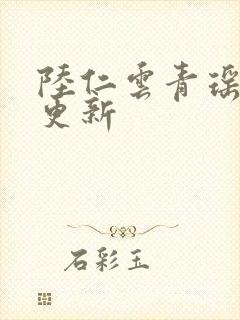 陸仁雲青瑤
更新
石彩玉